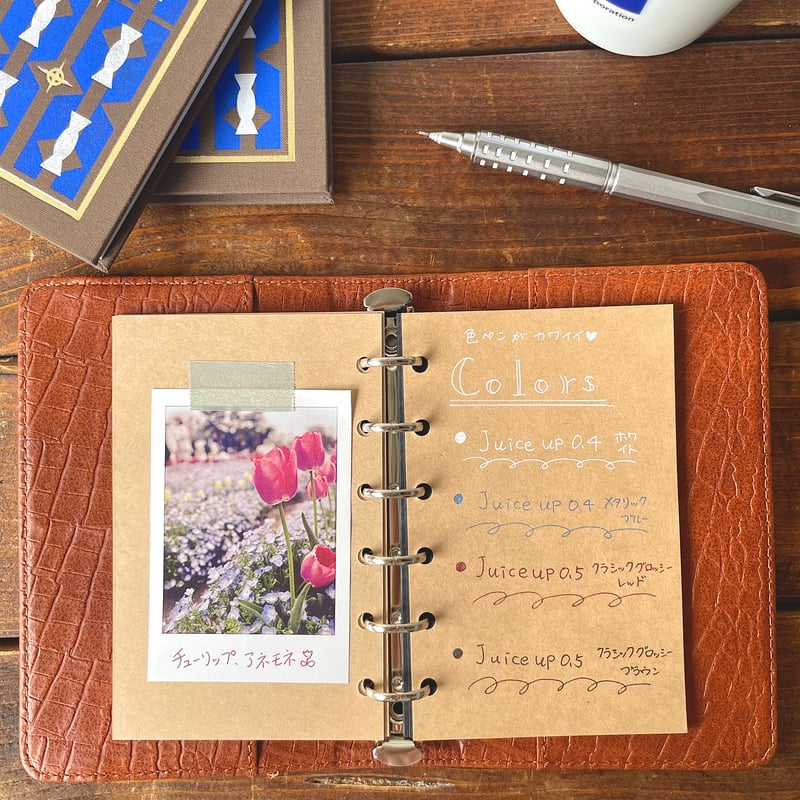 poration
色ペンがカワイイ♥
Colors
Juice up 0.4 ホワイト
Juice up 0.4 メタリック
ブルー
Juice up 0.5 クラシックグロッシー
レッド
Juice up 0.5 クラシックグロッシー
ブラウン
チューリップ、アネモネ